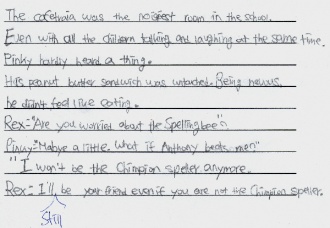 The cafethaia was the noisest room in the school.
Even with all the childern talking and laughing at the same time.
Pinky hardly heard a thing.
His peanut butter sandwich was untouched. Being nevous,
he didn't feel like eating.
Rex- "Are you worried about the Spelling bee"?
Pinky- "Mabye a little. What if Anthony beats me?"
"I won't be the Chimpion speller anymore.
Rex- I'll be your friend even if you are not the Chimpion speller.
Still